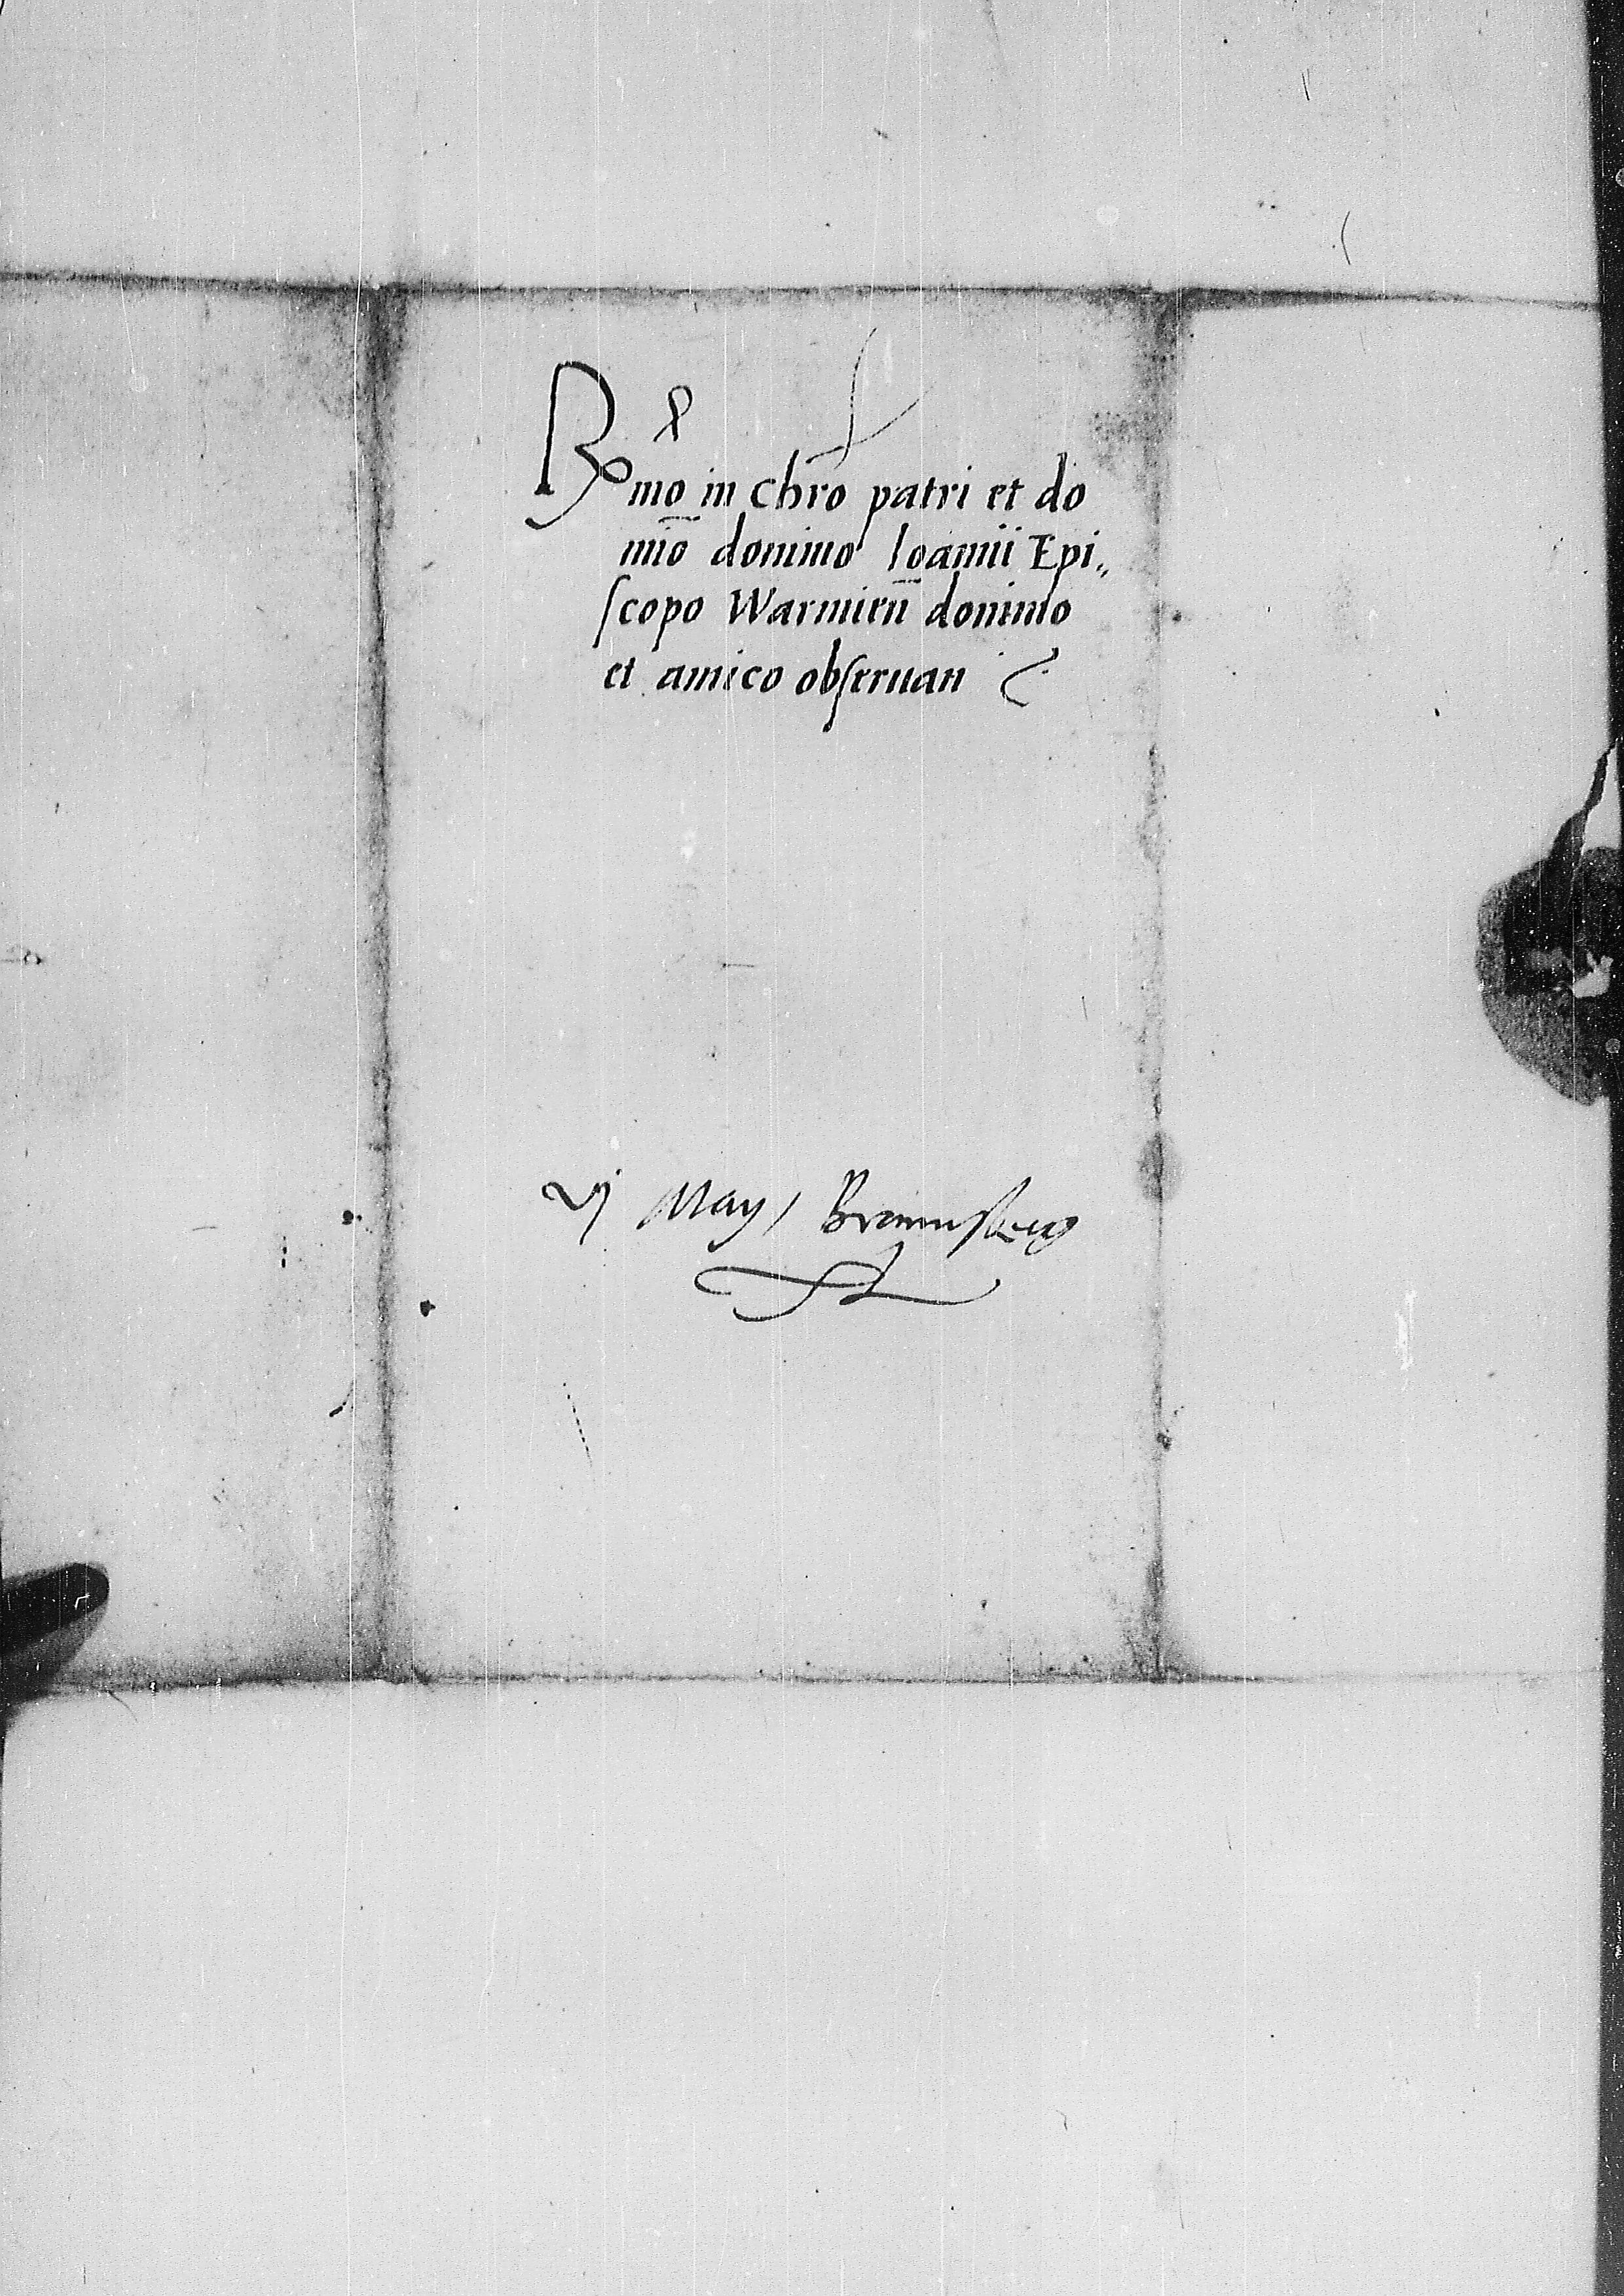 Rmo in chro patri et do
mio domino Ioannii Epi„
scopo Warmien̄ domino
et amico obseruan
vj May / Braunsberg